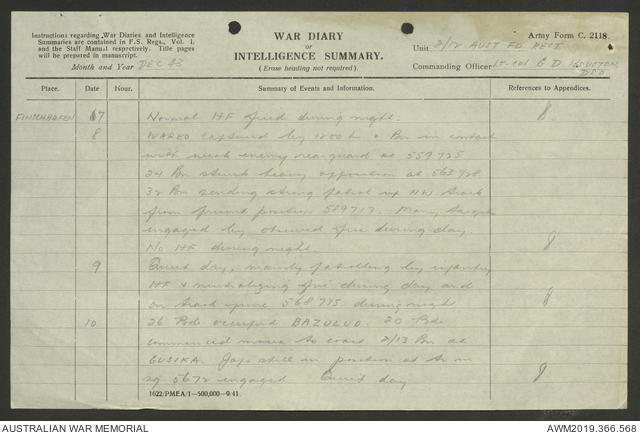 Instructions regarding War Diaries and Intelligence
Summaries are contained in F.S. Regs., Vol. I.
and the Staff Manual respectively. Title pages
will be prepared in manuscript.
Month and Year DEC 43
WAR DIARY
OR
INTELLIGENCE SUMMARY.
(Erase heading not required).
Army Form C. 2118.
Unit 2/12 AUST FD REGT
Commanding Officer Lt-Col G D HOUSTON
DSO
Place. Date Hour. Summary of Events and Information. References to Appendices.
FINSCHHAFEN 7 Normal HF fired during night. 8
8 WAREO captured by 1800 h Bn in contact
with weak enemy rearguard at 559725
24 Bn struck heavy opposition at 563728
32 Bn sending strong patrol up NW track
from present position 589717. Many targets
engaged by observed fire during day.
No HF during night. 8
9 Quiet day, mainly patrolling by infantry
HF + neutralizing fire during day and
on track 568775 during night 8
10 26 Bde occupied 20 Bde
commenced move to coast 2/13 Bn at
GUSIKA. Japs still in position at
sq 5672 engaged Quiet day 8
1622/PMEA/1—500,000—9/41.
AUSTRALIAN WAR MEMORIAL
AWM2019.366.568